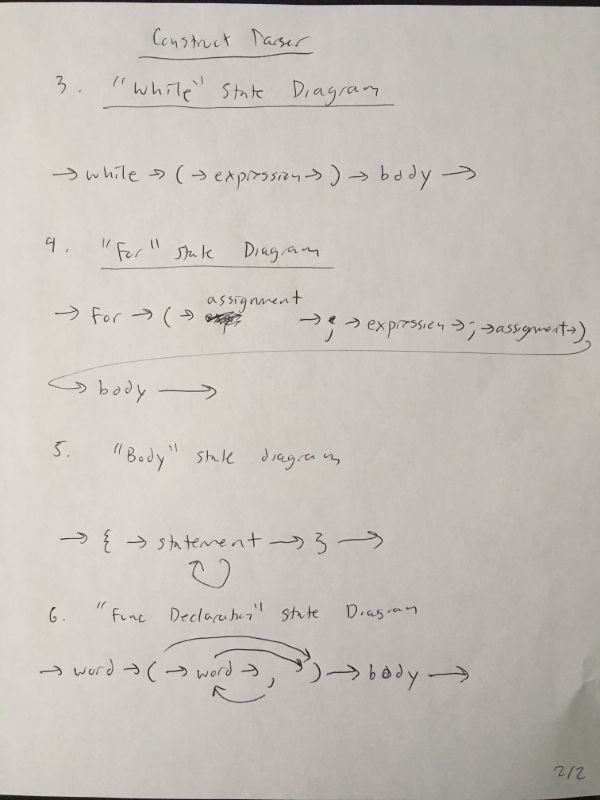 Construct Parser
3. "While" State Diagram
→ while → ( → expression → ) → body →
4. "For" state Diagram
→ For → ( → assignment → ; → expression → ; → assignment → )
→ body →
5. "Body" state diagram
→ { → statement → } →
6. "Func Declaration" state Diagram
→ word → ( → word → , ) → body →
2/2